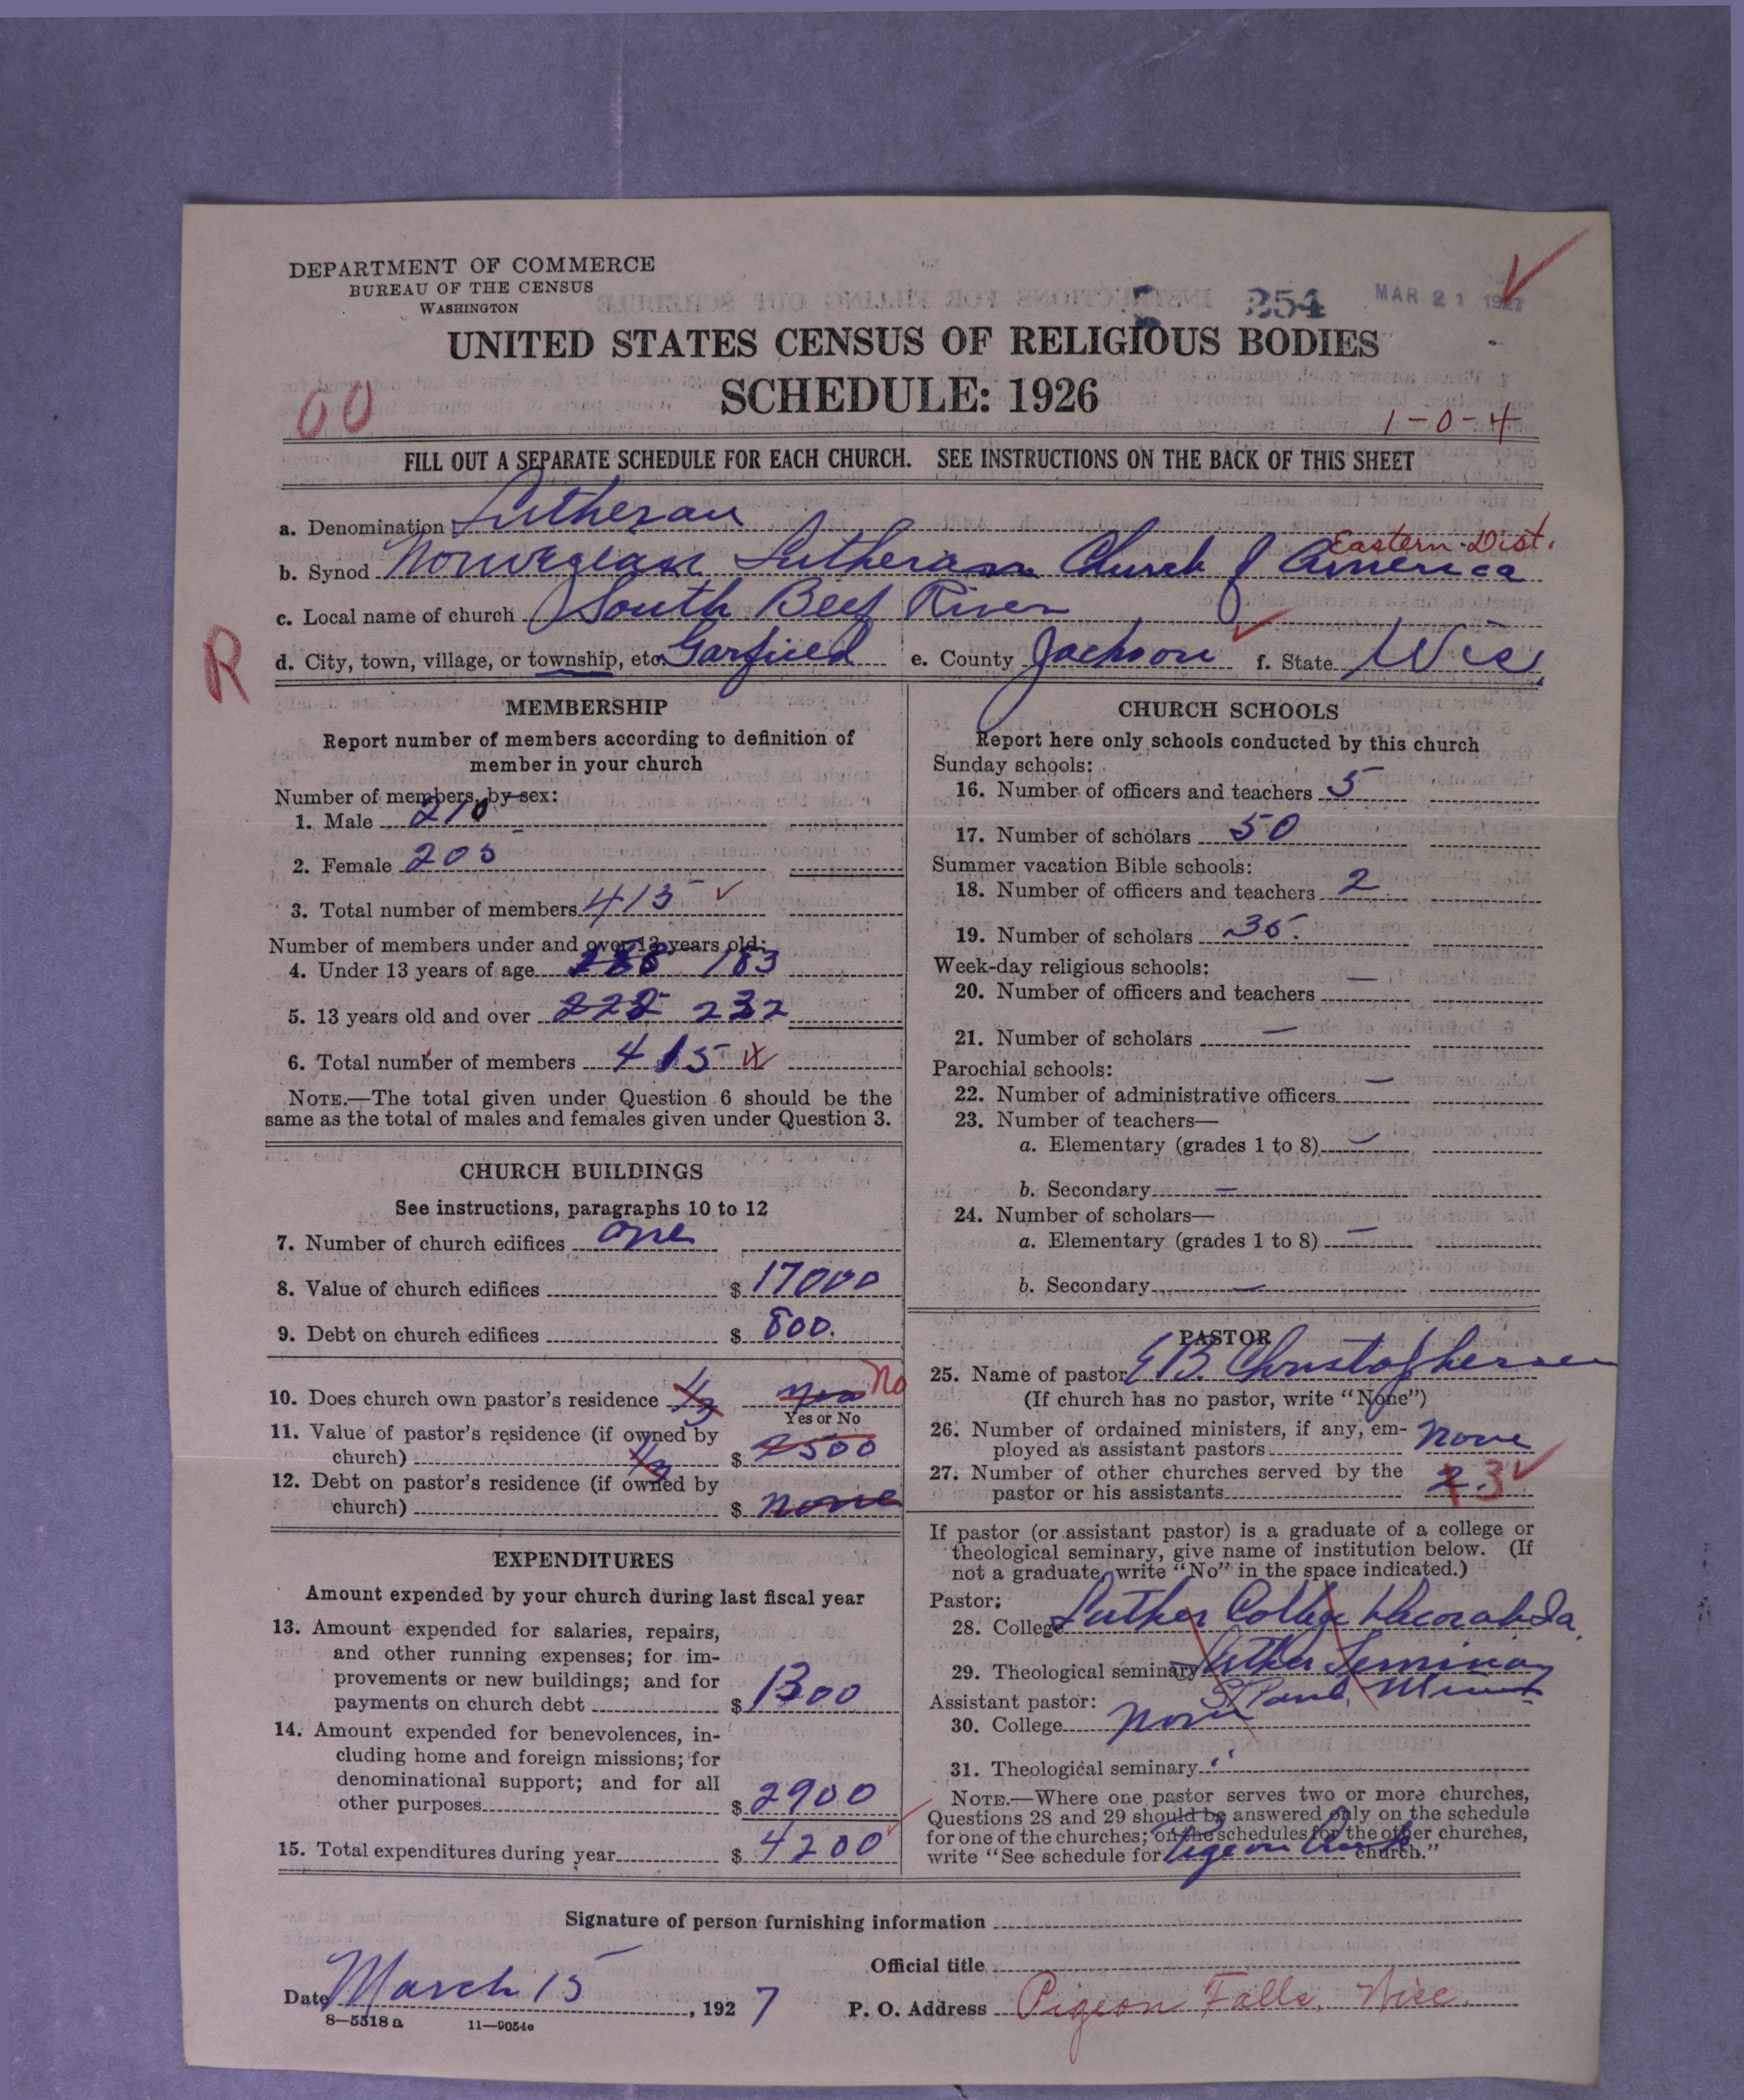 DEPARTMENT OF COMMERCE
BUREAU OF THE CENSUS
WASHINGTON
254
MAR 21 1927
UNITED STATES CENSUS OF RELIGIOUS BODIES
SCHEDULE: 1926
00
1-0-4
FILL OUT A SEPARATE SCHEDULE FOR EACH CHURCH. SEE INSTRUCTIONS ON THE BACK OF THIS SHEET
a. Denomination Lutheran
Eastern Dist.
b. Synod Norwegian Lutheran Church of America
c. Local name of church South Beef River
R
d. City, town, village, or township, etc. Garfield e. County Jackson f. State Wis.
MEMBERSHIP
Report number of members according to definition of
member in your church
Number of members, by sex:
1. Male 210
2. Female 205
3. Total number of members 415
Number of members under and over 13 years old:
4. Under 13 years of age 183
5. 13 years old and over 222 232
6. Total number of members 415
NOTE.—The total given under Question 6 should be the
same as the total of males and females given under Question 3.
CHURCH BUILDINGS
See instructions, paragraphs 10 to 12
7. Number of church edifices one
8. Value of church edifices $ 17000
9. Debt on church edifices $ 800.
10. Does church own pastor's residence 1/3 yes No
Yes or No
11. Value of pastor's residence (if owned by
church) 1/3 $ 2500
12. Debt on pastor's residence (if owned by
church) $ none
EXPENDITURES
Amount expended by your church during last fiscal year
13. Amount expended for salaries, repairs,
and other running expenses; for im-
provements or new buildings; and for
payments on church debt $ 1300
14. Amount expended for benevolences, in-
cluding home and foreign missions; for
denominational support; and for all
other purposes $ 2900
15. Total expenditures during year $ 4200
CHURCH SCHOOLS
Report here only schools conducted by this church
Sunday schools:
16. Number of officers and teachers 5
17. Number of scholars 50
Summer vacation Bible schools:
18. Number of officers and teachers 2
19. Number of scholars 35.
Week-day religious schools:
20. Number of officers and teachers —
21. Number of scholars —
Parochial schools:
22. Number of administrative officers —
23. Number of teachers—
a. Elementary (grades 1 to 8) —
b. Secondary —
24. Number of scholars—
a. Elementary (grades 1 to 8) —
b. Secondary —
PASTOR
25. Name of pastor E B. Christophersen
(If church has no pastor, write "None")
26. Number of ordained ministers, if any, em-
ployed as assistant pastors none
27. Number of other churches served by the
pastor or his assistants 2. 3
If pastor (or assistant pastor) is a graduate of a college or
theological seminary, give name of institution below. (If
not a graduate, write "No" in the space indicated.)
Pastor:
28. College Luther College Decorah Ia.
29. Theological seminary Luther Seminary
St Paul, Minn
Assistant pastor:
30. College None
31. Theological seminary "
NOTE.—Where one pastor serves two or more churches,
Questions 28 and 29 should be answered only on the schedule
for one of the churches; on the schedules for the other churches,
write "See schedule for Pigeon Creek church."
Signature of person furnishing information
Official title
Date March 15, 1927 P. O. Address Pigeon Falls, Wisc.
8—5518 a 11—9054e